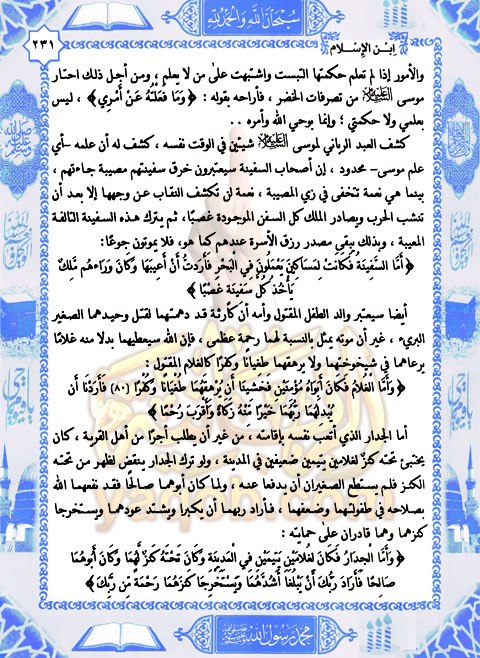 سبحان الله والحمد لله
٢٣١
ابن الإسلام
والأمور إذا لم تعلم حكمتها التبست واشتبهت على من لا يعلم ، ومن أجل ذلك احتار
موسى عليه السلام من تصرفات الخضر ، فأراحه بقوله : ﴿ وَمَا فَعَلْتُهُ عَنْ أَمْرِي ﴾ ، ليس
بعلمي ولا حكمتي ؛ وإنما بوحي الله وأمره . .
كشف العبد الرباني لموسى عليه السلام شيئين في الوقت نفسه ، كشف له أن علمه –أي
علم موسى– محدود ، إن أصحاب السفينة سيعتبرون خرق سفينتهم مصيبة جاءتهم ،
بينما هي نعمة تتخفى في زي المصيبة ، نعمة لن تكشف النقاب عن وجهها إلا بعد أن
تنشب الحرب ويصادر الملك كل السفن الموجودة غصبًا، ثم يترك هذه السفينة التالفة
المعيبة ، وبذلك يبقى مصدر رزق الأسرة عندهم كما هو، فلا يموتون جوعًا:
﴿ أَمَّا السَّفِينَةُ فَكَانَتْ لِمَسَاكِينَ يَعْمَلُونَ فِي الْبَحْرِ فَأَرَدتُّ أَنْ أَعِيبَهَا وَكَانَ وَرَاءَهُم مَّلِكٌ
يَأْخُذُ كُلَّ سَفِينَةٍ غَصْبًا ﴾
أيضا سيعتبر والد الطفل المقتول وأمه أن كارثة قد دهمتهما لقتل وحيدهما الصغير
البريء ، غير أن موته يمثل بالنسبة لهما رحمة عظمى ، فإن الله سيعطيهما بدلا منه غلامًا
يرعاهما في شيخوختهما ولا يرهقهما طغيانًا وكفرًا كالغلام المقتول :
﴿ وَأَمَّا الْغُلَامُ فَكَانَ أَبَوَاهُ مُؤْمِنَيْنِ فَخَشِينَا أَن يُرْهِقَهُمَا طُغْيَانًا وَكُفْرًا (٨٠) فَأَرَدْنَا أَن
يُبْدِلَهُمَا رَبُّهُمَا خَيْرًا مِّنْهُ زَكَاةً وَأَقْرَبَ رُحْمًا ﴾
أما الجدار الذي أتعب نفسه بإقامته ، من غير أن يطلب أجرًا من أهل القرية ، كان
يختبئ تحته كنزٌ لغلامين يتيمين ضعيفين في المدينة ، ولو ترك الجدار ينقض لظهر من تحته
الكنز فلم يستطع الصغيران أن يدفعا عنه ، ولما كان أبوهما صالحًا فقد نفعهما الله
بصلاحه في طفولتهما وضعفهما ، فأراد ربهما أن يكبرا ويشتد عودهما ويستخرجا
كنزهما وهما قادران على حمايته :
﴿ وَأَمَّا الْجِدَارُ فَكَانَ لِغُلَامَيْنِ يَتِيمَيْنِ فِي الْمَدِينَةِ وَكَانَ تَحْتَهُ كَنزٌ لَّهُمَا وَكَانَ أَبُوهُمَا
صَالِحًا فَأَرَادَ رَبُّكَ أَنْ يَبْلُغَا أَشُدَّهُمَا وَيَسْتَخْرِجَا كَنزَهُمَا رَحْمَةً مِّن رَّبِّكَ ﴾
محمد رسول الله